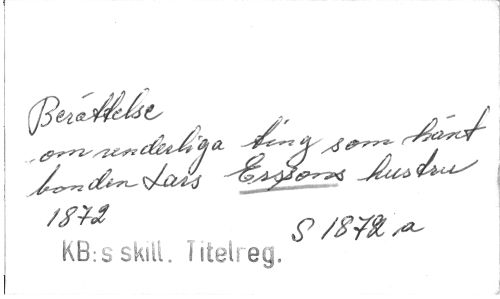 Berättelse
om underliga ting som hänt
bonden Lars Erssons hustru
1872
S 1872 a
KB:s skill. Titelreg.